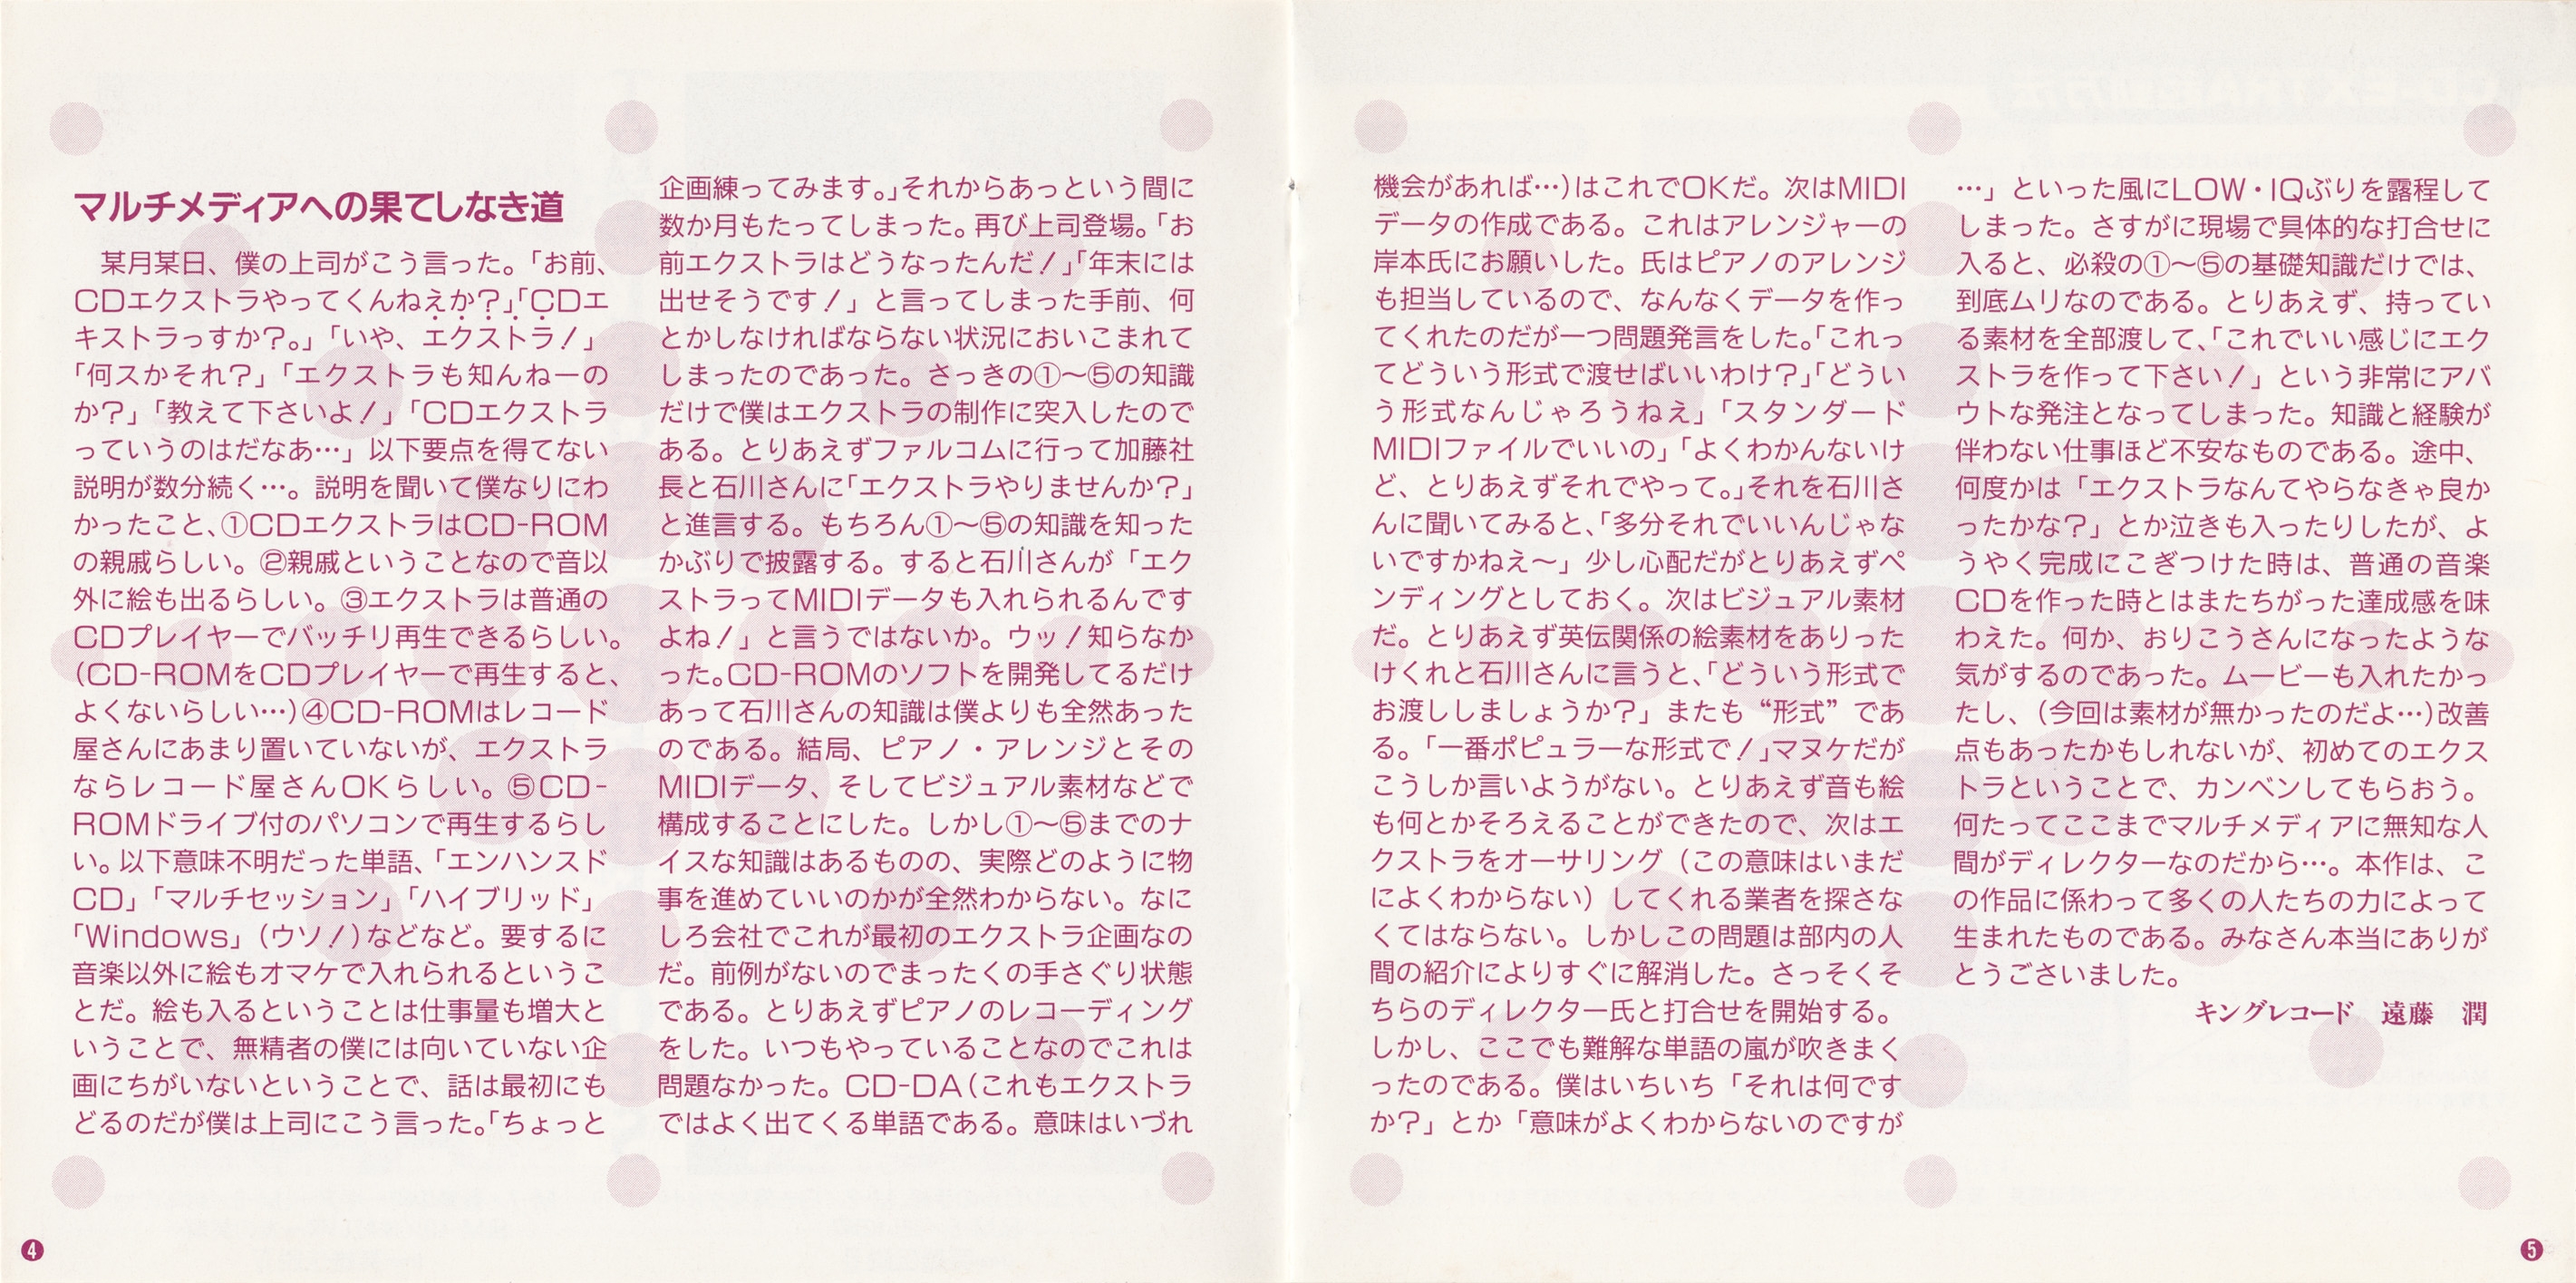 マルチメディアへの果てしなき道
某月某日、僕の上司がこう言った。「お前、
CDエクストラやってくんねえか？」「CDエ
キストラっすか？。」「いや、エクストラ！」
「何スかそれ？」「エクストラも知んねーの
か？」「教えて下さいよ！」「CDエクストラ
っていうのはだなあ…」以下要点を得てない
説明が数分続く…。説明を聞いて僕なりにわ
かったこと、①CDエクストラはCD-ROM
の親戚らしい。②親戚ということなので音以
外に絵も出るらしい。③エクストラは普通の
CDプレイヤーでバッチリ再生できるらしい。
（CD-ROMをCDプレイヤーで再生すると、
よくないらしい…）④CD-ROMはレコード
屋さんにあまり置いていないが、エクストラ
ならレコード屋さんOKらしい。⑤CD-
ROMドライブ付のパソコンで再生するらし
い。以下意味不明だった単語、「エンハンスド
CD」「マルチセッション」「ハイブリッド」
「Windows」（ウソ！）などなど。要するに
音楽以外に絵もオマケで入れられるというこ
とだ。絵も入るということは仕事量も増大と
いうことで、無精者の僕には向いていない企
画にちがいないということで、話は最初にも
どるのだが僕は上司にこう言った。「ちょっと
企画練ってみます。」それからあっという間に
数か月もたってしまった。再び上司登場。「お
前エクストラはどうなったんだ！」「年末には
出せそうです！」と言ってしまった手前、何
とかしなければならない状況においこまれて
しまったのであった。さっきの①〜⑤の知識
だけで僕はエクストラの制作に突入したので
ある。とりあえずファルコムに行って加藤社
長と石川さんに「エクストラやりませんか？」
と進言する。もちろん①〜⑤の知識を知った
かぶりで披露する。すると石川さんが「エク
ストラってMIDIデータも入れられるんです
よね！」と言うではないか。ウッ！知らなか
った。CD-ROMのソフトを開発してるだけ
あって石川さんの知識は僕よりも全然あった
のである。結局、ピアノ・アレンジとその
MIDIデータ、そしてビジュアル素材などで
構成することにした。しかし①〜⑤までのナ
イスな知識はあるものの、実際どのように物
事を進めていいのかが全然わからない。なに
しろ会社でこれが最初のエクストラ企画なの
だ。前例がないのでまったくの手さぐり状態
である。とりあえずピアノのレコーディング
をした。いつもやっていることなのでこれは
問題なかった。CD-DA（これもエクストラ
ではよく出てくる単語である。意味はいづれ
❹
機会があれば…）はこれでOKだ。次はMIDI
データの作成である。これはアレンジャーの
岸本氏にお願いした。氏はピアノのアレンジ
も担当しているので、なんなくデータを作っ
てくれたのだが一つ問題発言をした。「これっ
てどういう形式で渡せばいいわけ？」「どうい
う形式なんじゃろうねえ」「スタンダード
MIDIファイルでいいの」「よくわかんないけ
ど、とりあえずそれでやって。」それを石川さ
んに聞いてみると、「多分それでいいんじゃな
いですかねえ〜」少し心配だがとりあえずペ
ンディングとしておく。次はビジュアル素材
だ。とりあえず英伝関係の絵素材をありった
けくれと石川さんに言うと、「どういう形式で
お渡ししましょうか？」またも“形式”であ
る。「一番ポピュラーな形式で！」マヌケだが
こうしか言いようがない。とりあえず音も絵
も何とかそろえることができたので、次はエ
クストラをオーサリング（この意味はいまだ
によくわからない）してくれる業者を探さな
くてはならない。しかしこの問題は部内の人
間の紹介によりすぐに解消した。さっそくそ
ちらのディレクター氏と打合せを開始する。
しかし、ここでも難解な単語の嵐が吹きまく
ったのである。僕はいちいち「それは何です
か？」とか「意味がよくわからないのですが
…」といった風にLOW・IQぶりを露程して
しまった。さすがに現場で具体的な打合せに
入ると、必殺の①〜⑤の基礎知識だけでは、
到底ムリなのである。とりあえず、持ってい
る素材を全部渡して、「これでいい感じにエク
ストラを作って下さい！」という非常にアバ
ウトな発注となってしまった。知識と経験が
伴わない仕事ほど不安なものである。途中、
何度かは「エクストラなんてやらなきゃ良か
ったかな？」とか泣きも入ったりしたが、よ
うやく完成にこぎつけた時は、普通の音楽
CDを作った時とはまたちがった達成感を味
わえた。何か、おりこうさんになったような
気がするのであった。ムービーも入れたかっ
たし、（今回は素材が無かったのだよ…）改善
点もあったかもしれないが、初めてのエクス
トラということで、カンベンしてもらおう。
何たってここまでマルチメディアに無知な人
間がディレクターなのだから…。本作は、こ
の作品に係わって多くの人たちの力によって
生まれたものである。みなさん本当にありが
とうごさいました。
キングレコード　遠藤　潤
❺